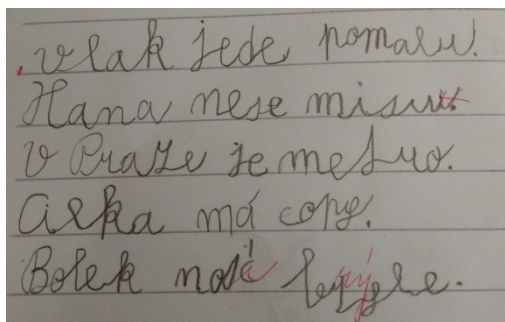 Vlak jede pomalu.
Hana nese misu.
V Praze je metro.
Alka má copy.
Bolek